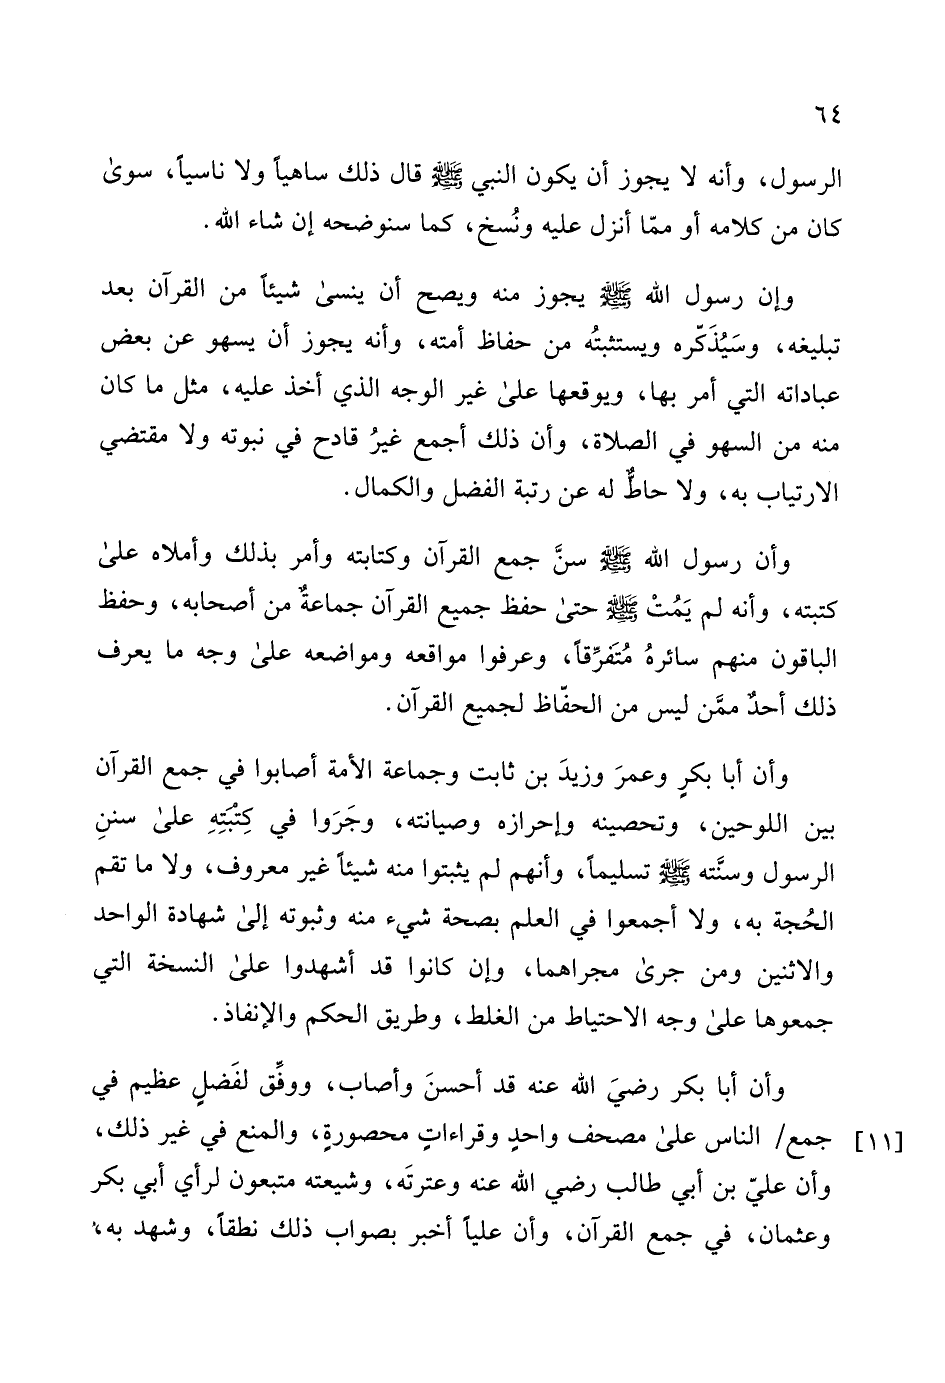 ٦٤
الرسول، وأنه لا يجوز أن يكون النبي ﷺ قال ذلك ساهياً ولا ناسياً، سوىٰ
كان من كلامه أو ممّا أنزل عليه ونُسخ، كما سنوضحه إن شاء الله.
وإن رسول الله ﷺ يجوز منه ويصح أن ينسىٰ شيئاً من القرآن بعد
تبليغه، وسَيُذَكّره ويستثبتُه من حفاظ أمته، وأنه يجوز أن يسهو عن بعض
عباداته التي أمر بها، ويوقعها علىٰ غير الوجه الذي أخذ عليه، مثل ما كان
منه من السهو في الصلاة، وأن ذلك أجمع غيرُ قادح في نبوته ولا مقتضي
الارتياب به، ولا حاطٌّ له عن رتبة الفضل والكمال.
وأن رسول الله ﷺ سنَّ جمع القرآن وكتابته وأمر بذلك وأملاه علىٰ
كتبته، وأنه لم يَمُتْ ﷺ حتىٰ حفظ جميع القرآن جماعةٌ من أصحابه، وحفظ
الباقون منهم سائرهُ مُتَفرِّقاً، وعرفوا مواقعه ومواضعه علىٰ وجه ما يعرف
ذلك أحدٌ ممَّن ليس من الحفّاظ لجميع القرآن.
وأن أبا بكرٍ وعمرَ وزيدَ بن ثابت وجماعة الأمة أصابوا في جمع القرآن
بين اللوحين، وتحصينه وإحرازه وصيانته، وجَرَوا في كِتْبَتِهِ علىٰ سننِ
الرسول وسنَّته ﷺ تسليماً، وأنهم لم يثبتوا منه شيئاً غير معروف، ولا ما تقم
الحُجة به، ولا أجمعوا في العلم بصحة شيء منه وثبوته إلىٰ شهادة الواحد
والاثنين ومن جرىٰ مجراهما، وإن كانوا قد أشهدوا علىٰ النسخة التي
جمعوها علىٰ وجه الاحتياط من الغلط، وطريق الحكم والإنفاذ.
وأن أبا بكر رضيَ الله عنه قد أحسنَ وأصاب، ووفِّق لفَضلٍ عظيم في
[١١] جمع/ الناس علىٰ مصحف واحدٍ وقراءاتٍ محصورةٍ، والمنع في غير ذلك،
وأن عليّ بن أبي طالب رضي الله عنه وعترتَه، وشيعته متبعون لرأي أبي بكر
وعثمان، في جمع القرآن، وأن علياً أخبر بصواب ذلك نطقاً، وشهد به،